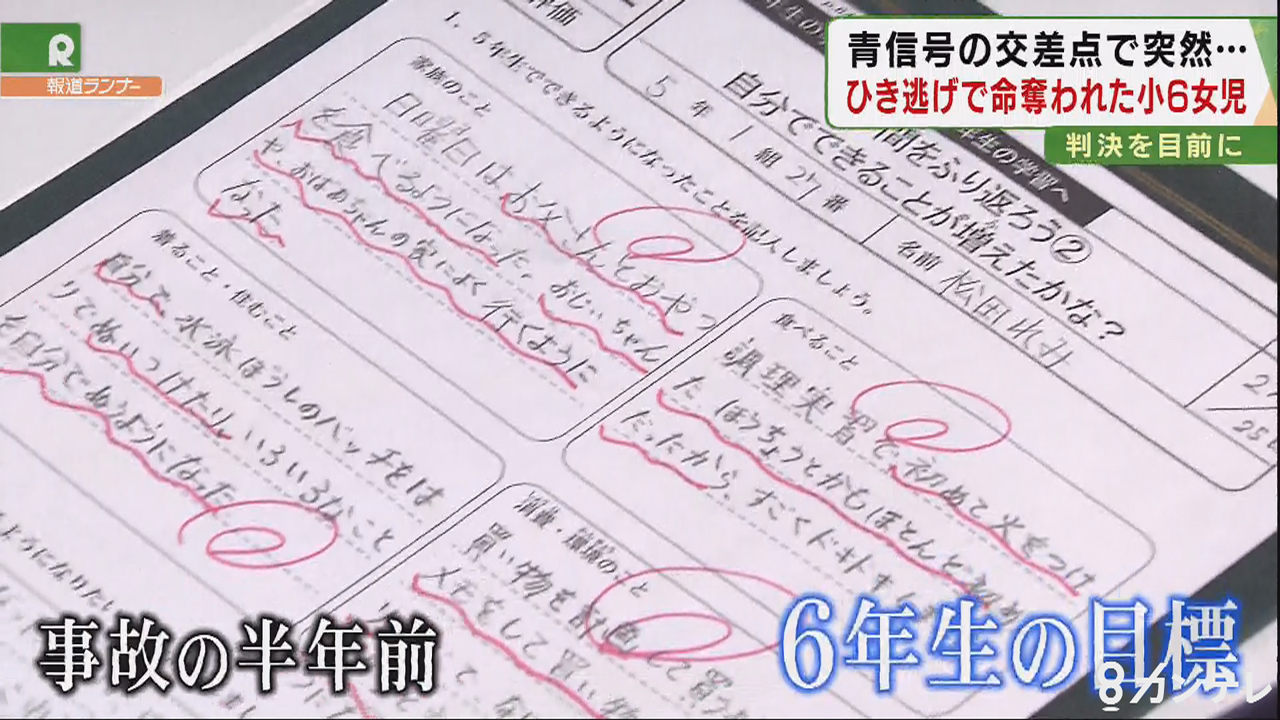 R
報道ランナー
青信号の交差点で突然…
ひき逃げで命奪われた小6女児
判決を目前に
評価
年生の学習へ
間をふり返ろう②
自分でできることが増えたかな?
5年1組27番
名前
松田
1. 5年生でできるようになったことを記入しましょう。
家族のこと
日曜日はお父さんとおやつ
を食べるようになった。おじいちゃん
や、おばあちゃんの家によく行くように
なった
食べること
調理実習で初めて火をつけ
た ほうちょうとかもほとんど初め
だったから、すごくドキドキ
着ること・住むこと
自分で、水泳ぼうしのバッヂをは
りてぬいつけたり、いろいろなこと
を自分でぬうようになった
消費・環境のこと
買い物を
メモをして買い物
ようになりたい
事故の半年前
6年生の目標
8カンテレ